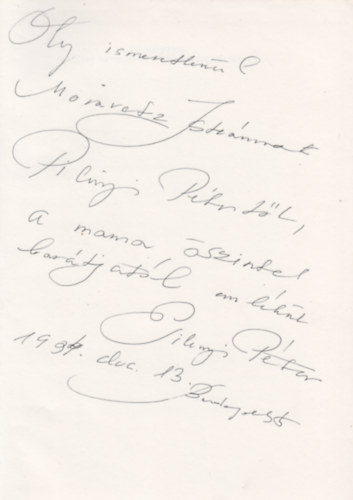 Oly ismeretlenül
Moravetz Istvánnak
Pilinyi Pétertől,
a mama őszinte
barátjától emlékül
Pilinyi Péter
dec. 13. Budapest